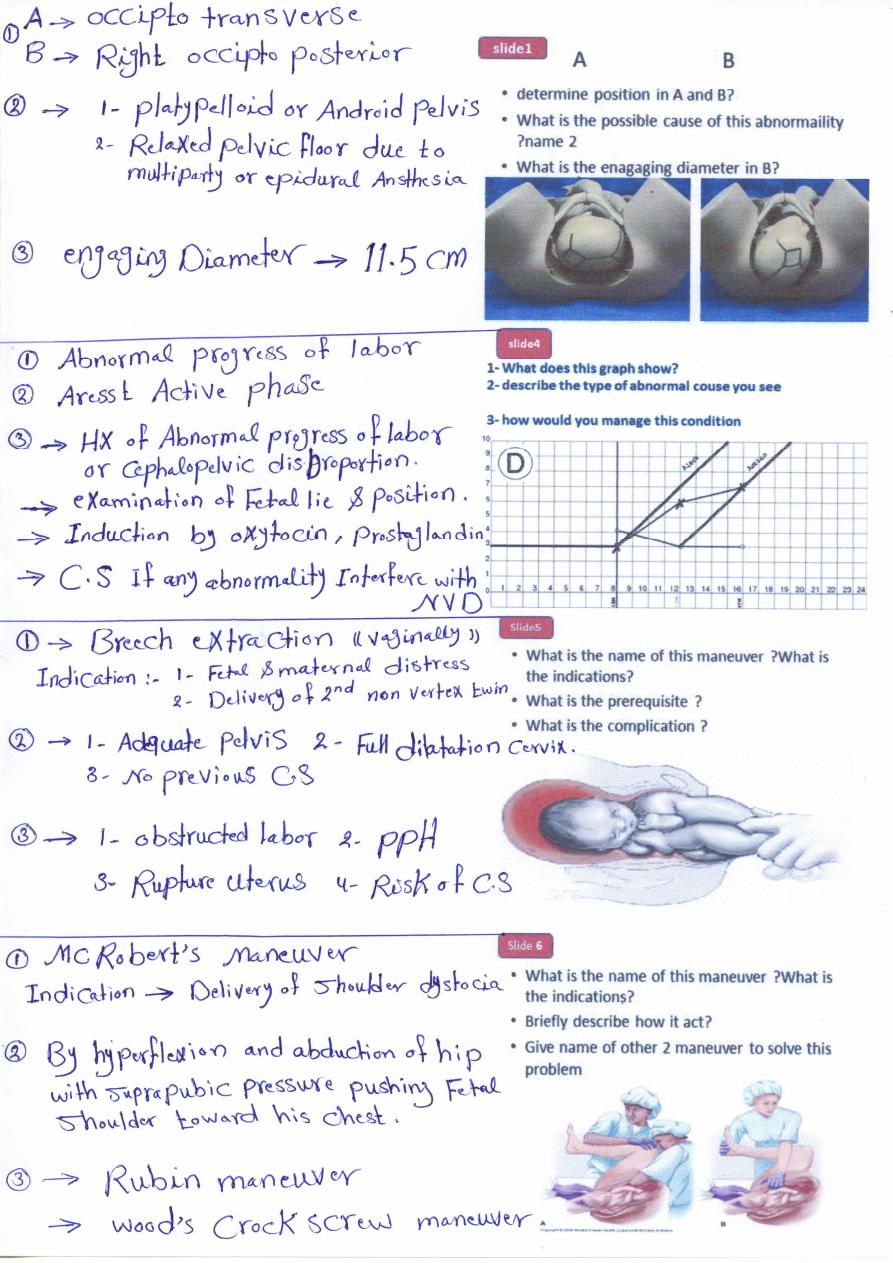 ① A → occipto transverse
B → Right occipto posterior
② → 1- Platypelloid or Android Pelvis
2- Relaxed pelvic floor due to
multiparty or epidural Ansthesia
③ engaging Diameter → 11.5 cm
slide1
A B
• determine position in A and B?
• What is the possible cause of this abnormaility
?name 2
• What is the enagaging diameter in B?
① Abnormal progress of labor
② Aresst Active phase
③ → HX of Abnormal progress of labor
or Cephalopelvic disproportion.
→ examination of Fetal lie & position.
→ Induction by oxytocin, prostaglandin
→ C.S If any abnormality Interfere with
NVD
slide4
1- What does this graph show?
2- describe the type of abnormal couse you see
3- how would you manage this condition
D
Alert Action
10
9
8
7
6
5
4
3
2
1
0 1 2 3 4 5 6 7 8 9 10 11 12 13 14 15 16 17 18 19 20 21 22 23 24
① → Breech extraction ((vaginally))
Indication :- 1- Fetal & maternal distress
2- Delivery of 2nd non vertex twin
② → 1- Adquate pelvis 2- Full dilatation Cervix.
3- No previous C.S
③ → 1- obstructed labor 2- PPH
3- Rupture uterus 4- Risk of C.S
Slide5
• What is the name of this maneuver ?What is
the indications?
• What is the prerequisite ?
• What is the complication ?
① MC Robert's maneuver
Indication → Delivery of shoulder dystocia
② By hyperflexion and abduction of hip
with suprapubic pressure pushing Fetal
shoulder toward his chest.
③ → Rubin maneuver
→ wood's Crock screw maneuver
Slide 6
• What is the name of this maneuver ?What is
the indications?
• Briefly describe how it act?
• Give name of other 2 maneuver to solve this
problem
A B